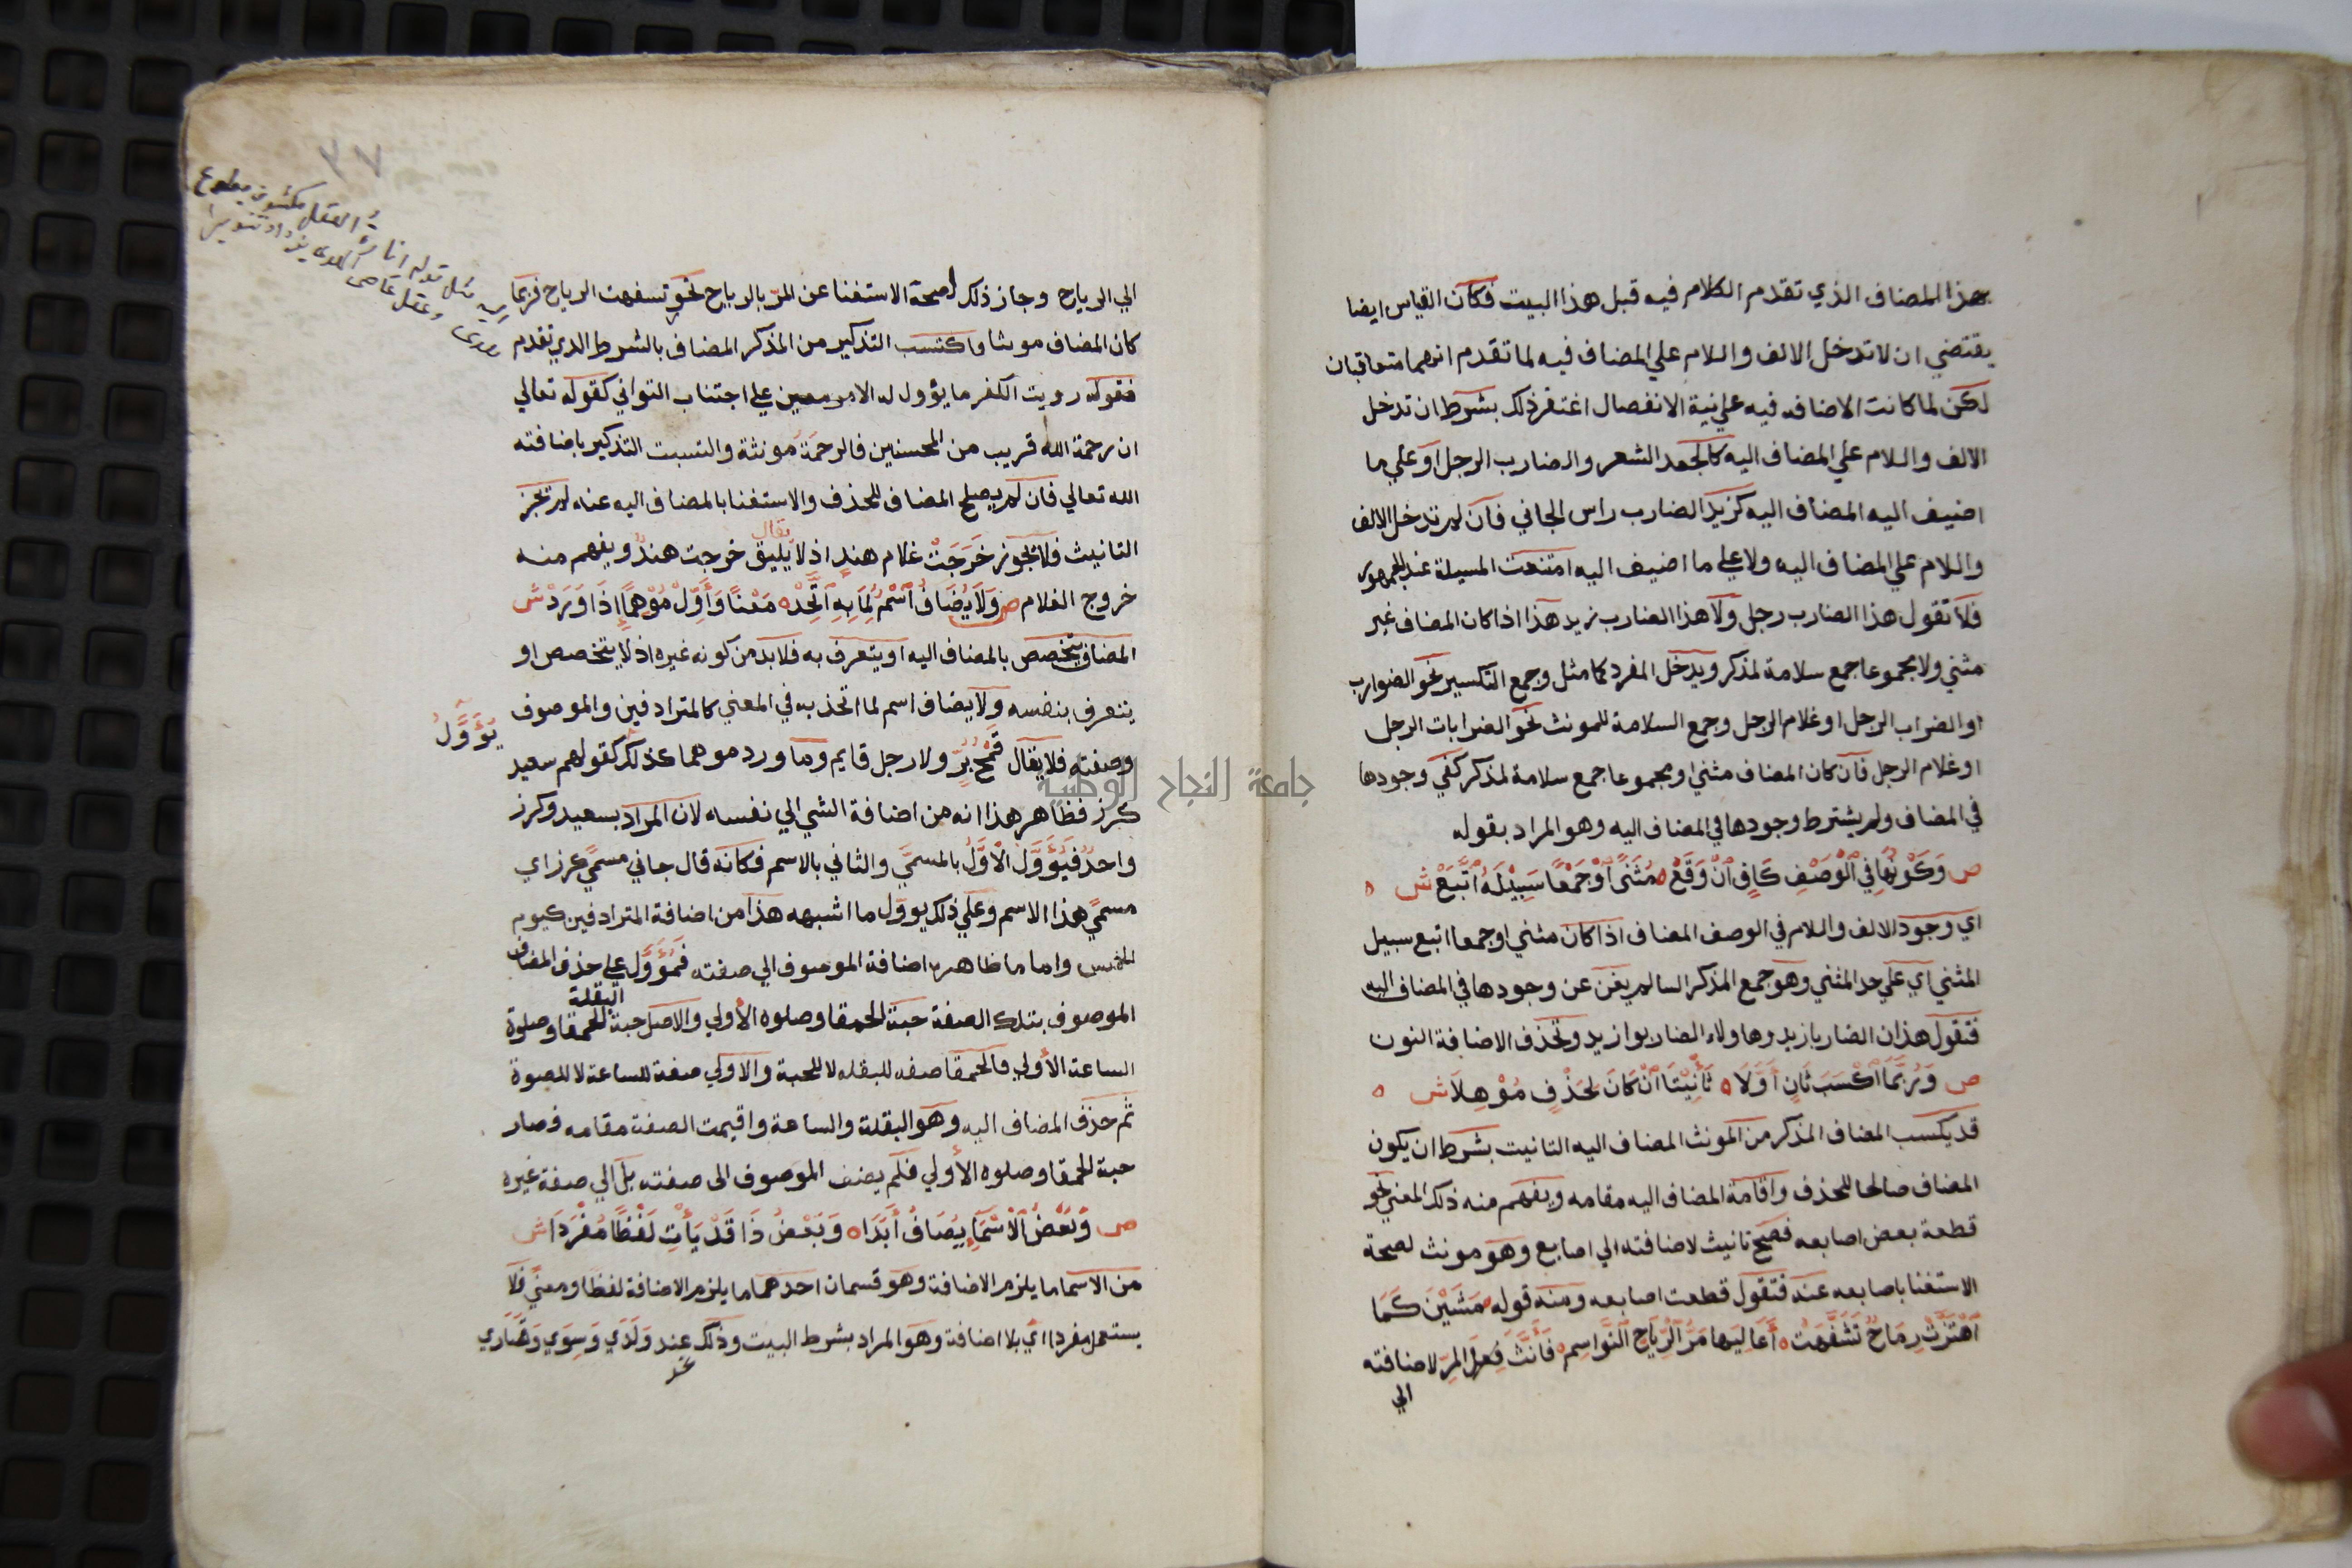 هذا المضاف الذي تقدم الكلام فيه قبل هذا البيت فكان القياس ايضا
يقتضي ان لا تدخل الالف واللام علي المضاف فيه لما تقدم انهما متعاقبان
لكن لما كانت الاضافه فيه علي نية الانفصال اغتفر ذلك بشرط ان تدخل
الالف واللام علي المضاف اليه كالجعد الشعر والضارب الرجل او علي ما
اضيف اليه المضاف اليه كزيد الضارب راس الجاني فان لم تدخل الالف
واللام علي المضاف اليه ولا علي ما اضيف اليه امتنعت المسيلة عند الجمهور
فلا تقول هذا الضارب رجل ولا هذا الضارب زيد هذا اذا كان المضاف غير
مثني ولا مجموعا جمع سلامة لمذكر ويدخل المفرد كما مثل وجمع التكسير نحو الضوارب
او الضراب الرجل او غلام الرجل وجمع السلامة للمونث نحو الضرابات الرجل
او غلام الرجل فان كان المضاف مثني او مجموعا جمع سلامة لمذكر كفي وجودها
في المضاف ولم يشترط وجودها في المضاف اليه وهو المراد بقوله
ص وَكَوْنُهَا فِي الْوَصْفِ كَافٍ اَنْ وَقَعْ مُثَنًى اَوْ جَمْعًا سَبِيْلَهُ اتَّبَعْ ش
اي وجود الالف واللام في الوصف المضاف اذا كان مثني او جمعا اتبع سبيل
المثني اي علي حد المثني وهو جمع المذكر السالم يغن عن وجودها في المضاف اليه
فتقول هذان الضاربا زيد وهاولاء الضاربوا زيد وتحذف الاضافة النون
ص وَرُبَّمَا اَكْسَبَ ثَانٍ أَوَّلَا تَأْنِيْثًا اَنْ كَانَ لِحَذْفٍ مُوْهِلَا ش
قد يكسب المضاف المذكر من المونث المضاف اليه التانيت بشرط ان يكون
المضاف صالحا للحذف واقامة المضاف اليه مقامه ويفهم منه ذلك المعني نحو
قطعة بعض اصابعه فصح تانيث لاضافته الي اصابع وهو مونث لصحة
الاستغنا باصابعه عنه فتقول قطعت اصابعه ومنه قوله مَشَيْنَ كَمَا
اَهْتَزَّتْ رِمَاحٌ تَسَفَّهَتْ أَعَالِيَها مَرُّ الرِّيَاحِ النَّوَاسِمِ فَأَنَّثَ فِعْلَ المرّ لاضافته
الي
٣٧
الي الرياح وجاز ذلك لصحة الاستغنا عن المرّ بالرياح نحو تسفهت الرياح فربما
كان المضاف مونثا واكتسب التذكير من المذكر المضاف بالشرط الدي تقدم
فقوله رويت الكفر ما يؤول له الامر معين علي اجتناب التواني كقوله تعالي
ان رحمة الله قريب من المحسنين فالرحمة مونثة واكتسبت التذكير باضافته
الله تعالي فان لم يصلح المضاف للحذف والاستغنا بالمضاف اليه عنه لم تجز
التانيث فلا تجوز خَرَجَتْ غلام هندٍ اذ لا يليق خرجت هندٌ ويفهم منه
يقال
خروج الغلام ص وَلَا يُضَافُ اسْمٌ لِمَا بِهِ اتَّحَدْ مَعْنًا وَأَوِّلْ مُوْهِمًا إِذَا وَرَدْ ش
المضاف يتخصص بالمضاف اليه او يتعرف به فلا بد من كونه غيره اذ لا يتخصص او
يتعرف بنفسه ولا يضاف اسم لما اتحذ به في المعني كالمترادفين والموصوف
وصفته فلا يقال قَمْحُ بُرٍّ ولا رجل قايم وما ورد موهما كذلك كقولهم سعيد
يُؤَوَّلُ
كرز فظاهر هذا انه من اضافة الشي الي نفسه لان المراد بسعيد وكرز
واحدٌ فيُؤَوَّل الأوَّلُ بالمسمَّي والثاني بالاسم فكانه قال جاني مسمَّي كرز اي
مسمَّي هذا الاسم وعلي ذلك يوول ما اشبهه هذا من اضافة المترادفين كيوم
الخميس واما ما ظاهره اضافة الموصوف الي صفته فمُؤَوَّل علي حذف المضاف
الموصوف بتلك الصفة حبة الحمقا وصلوه الأولي والاصل حبة للحمقا وصلوة
البقلة
الساعة الأولي فالحمقا صفه للبقله لا للحبة والاولي صفة للساعة لا للصوة
ثم حذف المضاف اليه وهو البقلة والساعة واقيمت الصفة مقامه فصار
حبة الحمقا وصلوه الأولي فلم يضف الموصوف الى صفته بل الي صفة غيره
ص وَبَعْضُ الْأَسْمَاءِ يُضَافُ أَبَدَا وَبَعْضُ ذَا قَدْ يَأْتِ لَفْظًا مُفْرَدَا ش
من الاسما ما يلزم الاضافة وهو قسمان احدهما ما يلزم الاضافة لفظا ومعني فلا
يستعمل مفردا اي بلا اضافة وهو المراد بشرط البيت وذلك عند وَلَدَي وَسِوَي وَقُصَارَي
جامعة النجاح الوطنية